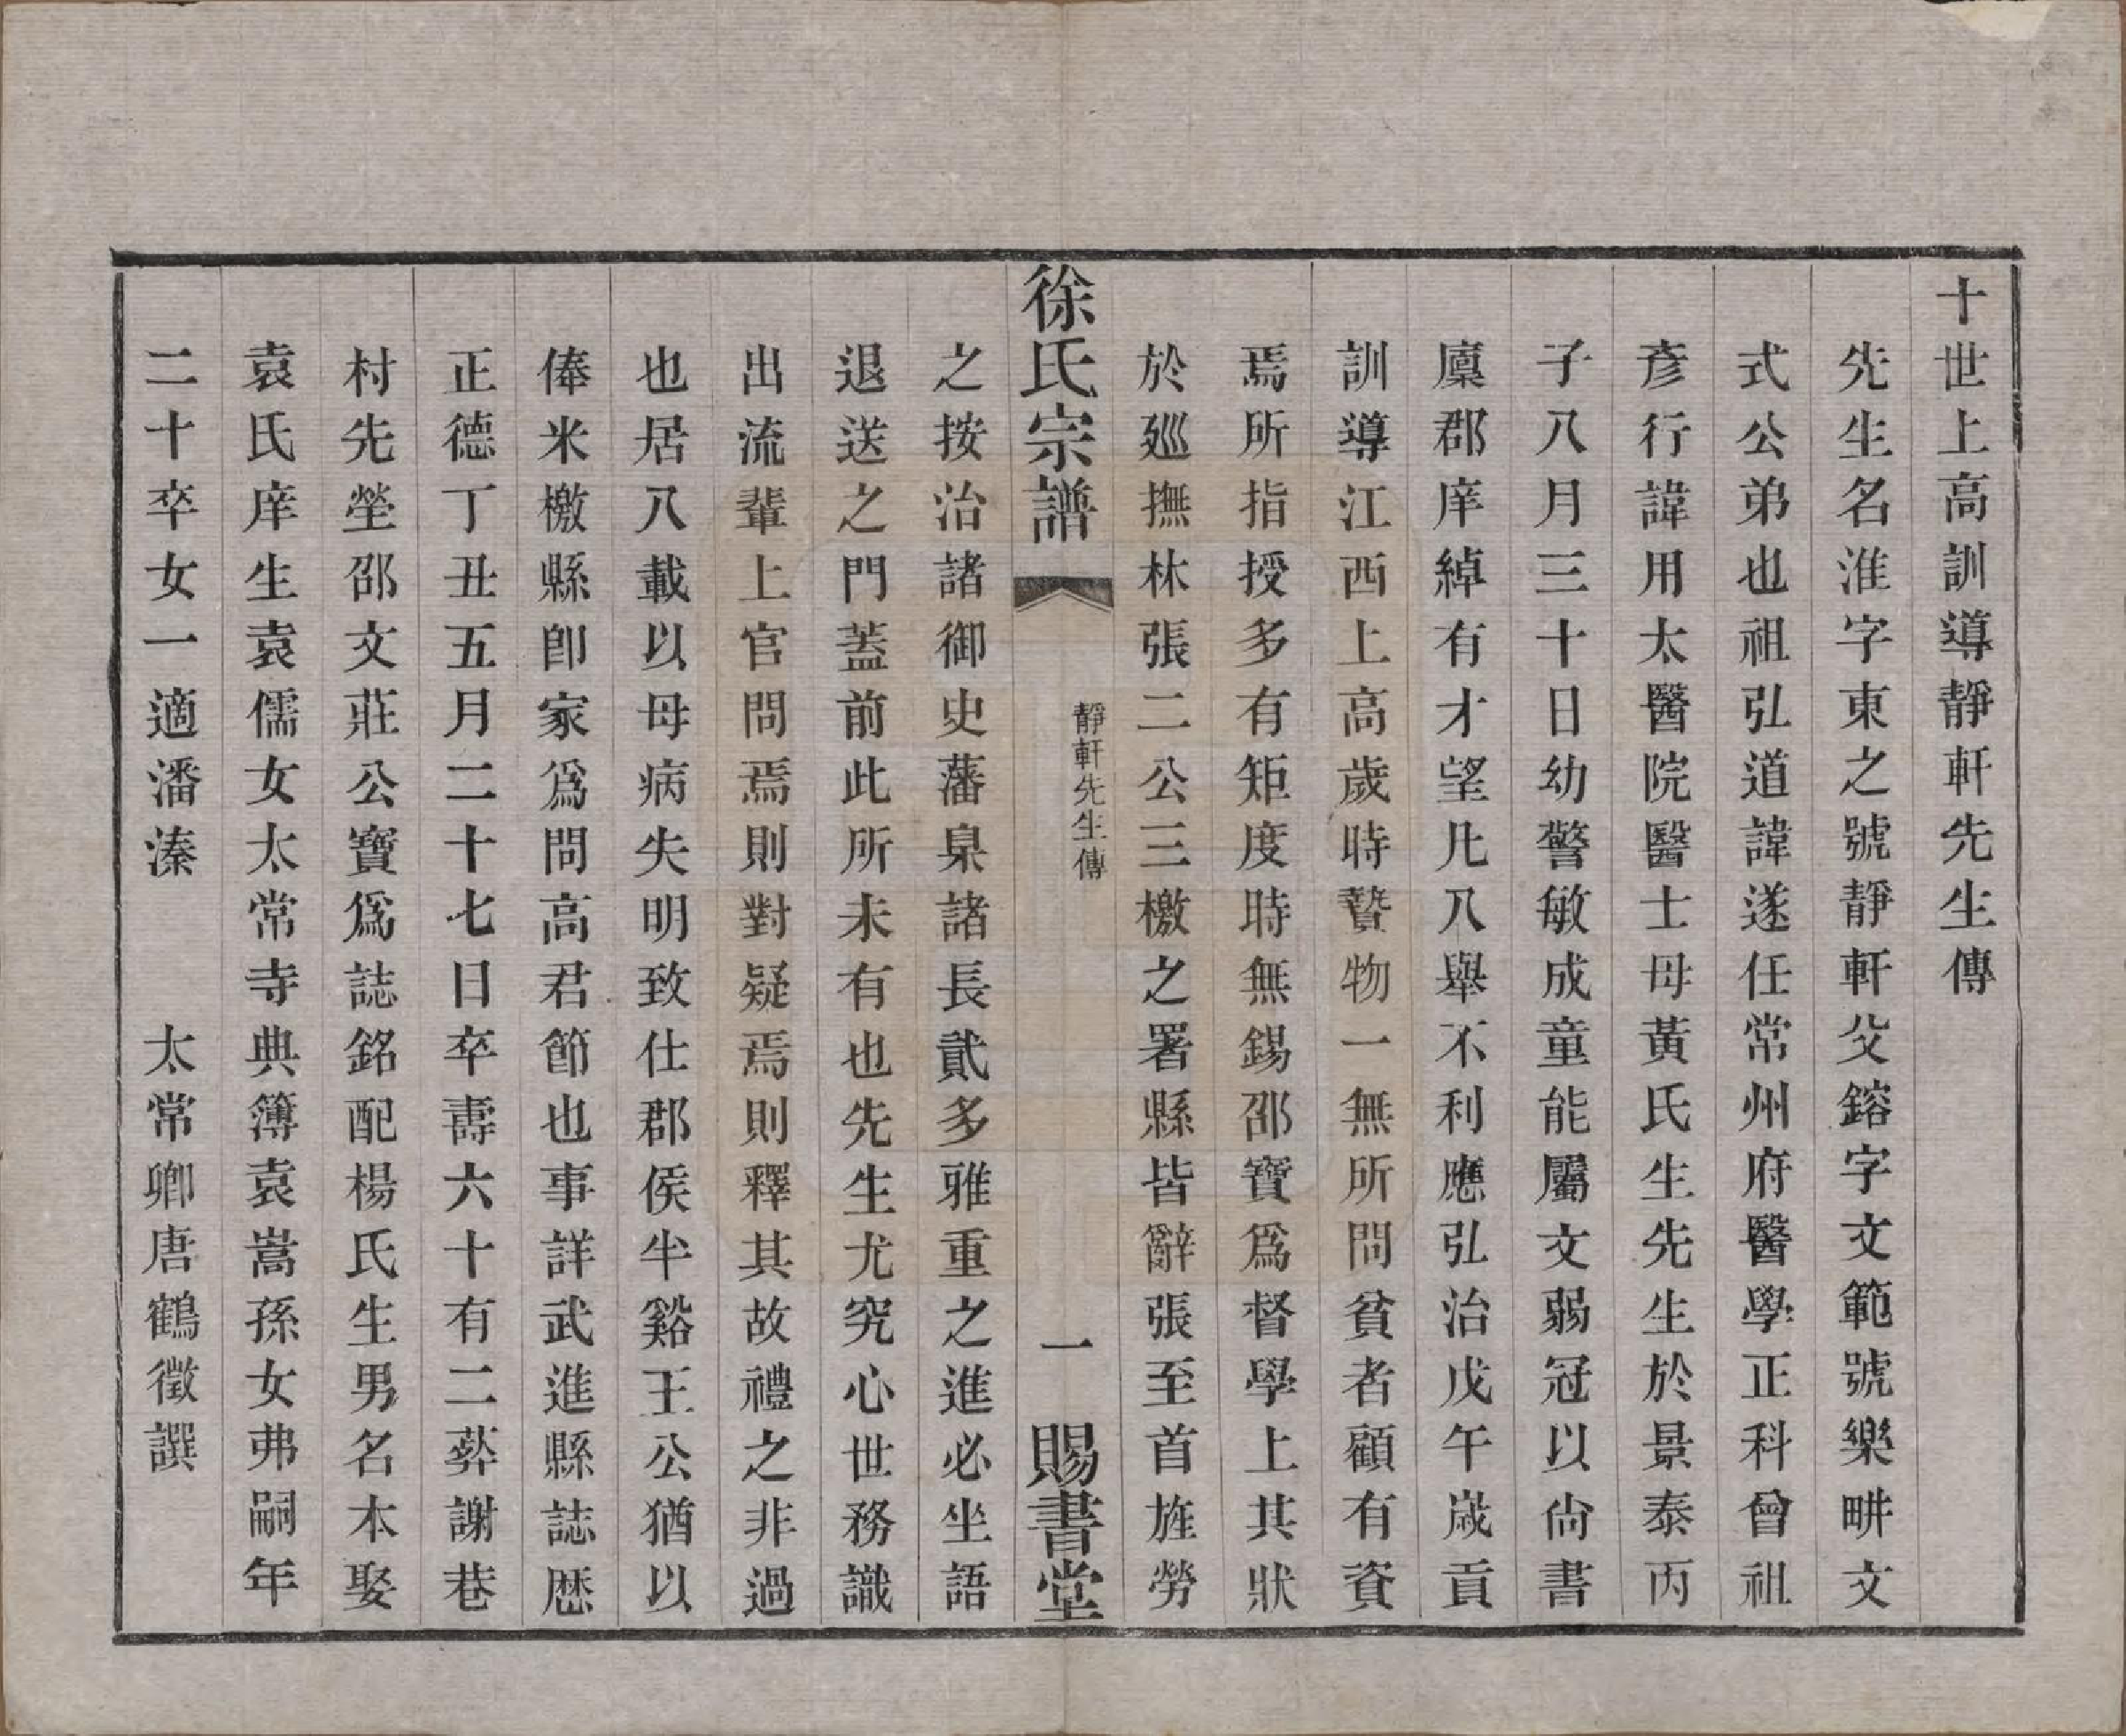 十世上高訓導靜軒先生傳
先生名淮字東之號靜軒父鎔字文範號樂畊文
式公弟也祖弘道諱遂任常州府醫學正科曾祖
彥行諱用太醫院醫士母黃氏生先生於景泰丙
子八月三十日幼警敏成童能屬文弱冠以尙書
廩郡庠綽有才望凡八舉不利應弘治戊午歲貢
訓導江西上高歲時贄物一無所問貧者顧有資
焉所指授多有矩度時無錫邵寶爲督學上其狀
於廵撫林張二公三檄之署縣皆辭張至首旌勞
徐氏宗譜
靜軒先生傳
一
賜書堂
之按治諸御史藩臬諸長貳多雅重之進必坐語
退送之門蓋前此所未有也先生尤究心世務識
出流輩上官問焉則對疑焉則釋其故禮之非過
也居八載以母病失明致仕郡侯半谿王公猶以
俸米檄縣卽家爲問高君節也事詳武進縣誌歷
正德丁丑五月二十七日卒壽六十有二葬謝巷
村先塋邵文莊公寶爲誌銘配楊氏生男名本娶
袁氏庠生袁儒女太常寺典簿袁嵩孫女弗嗣年
二十卒女一適潘溱
太常卿唐鶴徵譔